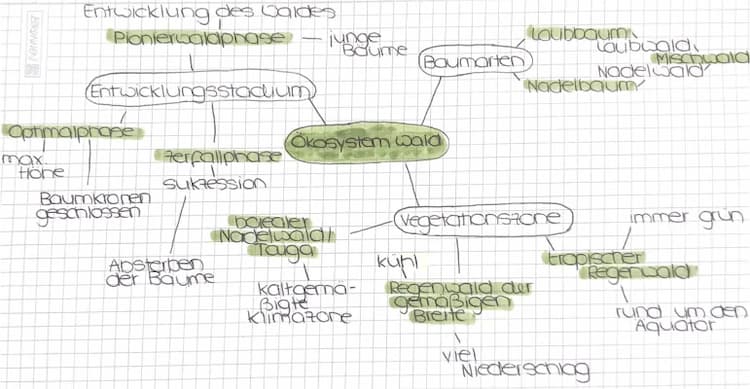 Entwicklung des Waldes
Pionierwaldphase — junge
Bäume
Entwicklungsstadium
Optimalphase
max.
Höhe
Baumkronen
geschlossen
Zerfallphase
sukzession
Absterben
der Bäume
Ökosystem Wald
Baumarten
Laubbaum
Laubwald
Mischwald
Nadelwald
Nadelbaum
Vegetationszone
borealer
Nadelwald/
Taiga
kaltgemä-
ßigte
Klimazone
kühl
Regenwald der
gemäßigen
Breite
viel
Niederschlag
tropischer
Regenwald
immer grün
rund um den
Äquator